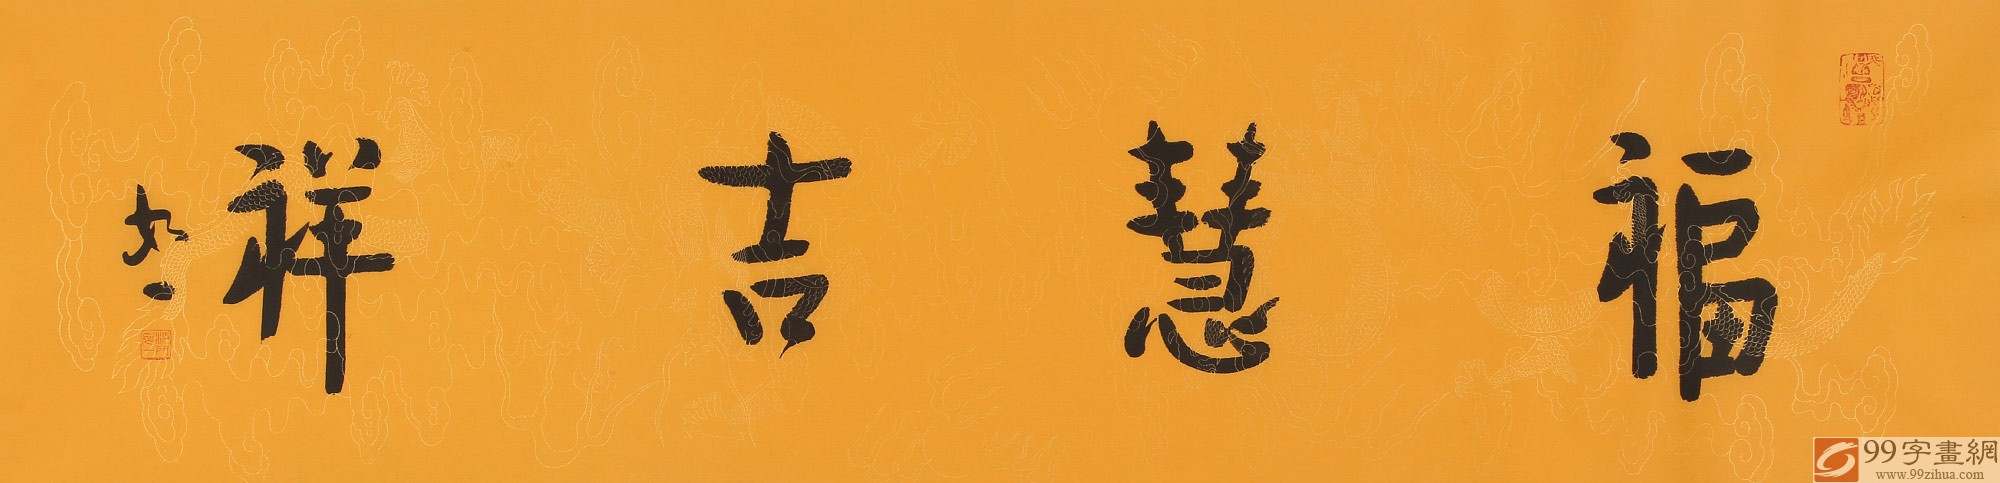 福慧吉祥
99字畫網
www.99zihua.com